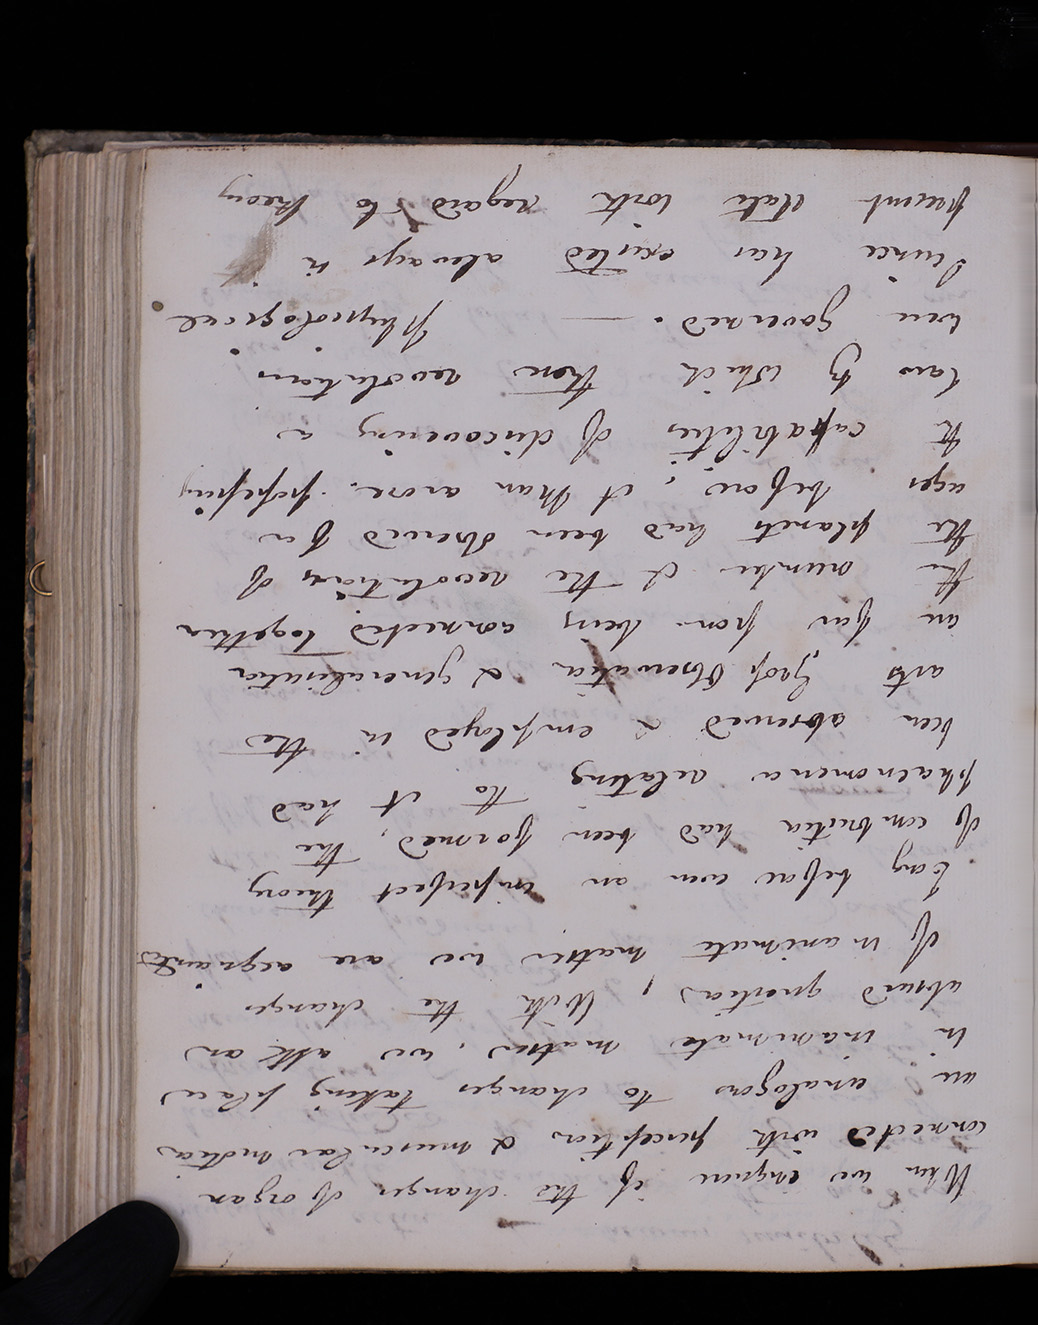 When we enquire if the changes of organ
connected with perception & muscular motion
are analogous to changes taking place
in inanimate matter, we ask an
absurd question, With the changes
of inanimate matter we are acquainted
Long before even an imperfect theory
of combustion had been formed, the
phaenomena relating to it had
been observed & employed in the
arts observation & generalisation
are far from being connected together
the number & the revolutions of
the planets had been observed for
ages before, a Man arose possessing
the capabilities of discovering a
law by which their revolutions
were governed. — Physiological
Science has existed always in
present state with regard to theory